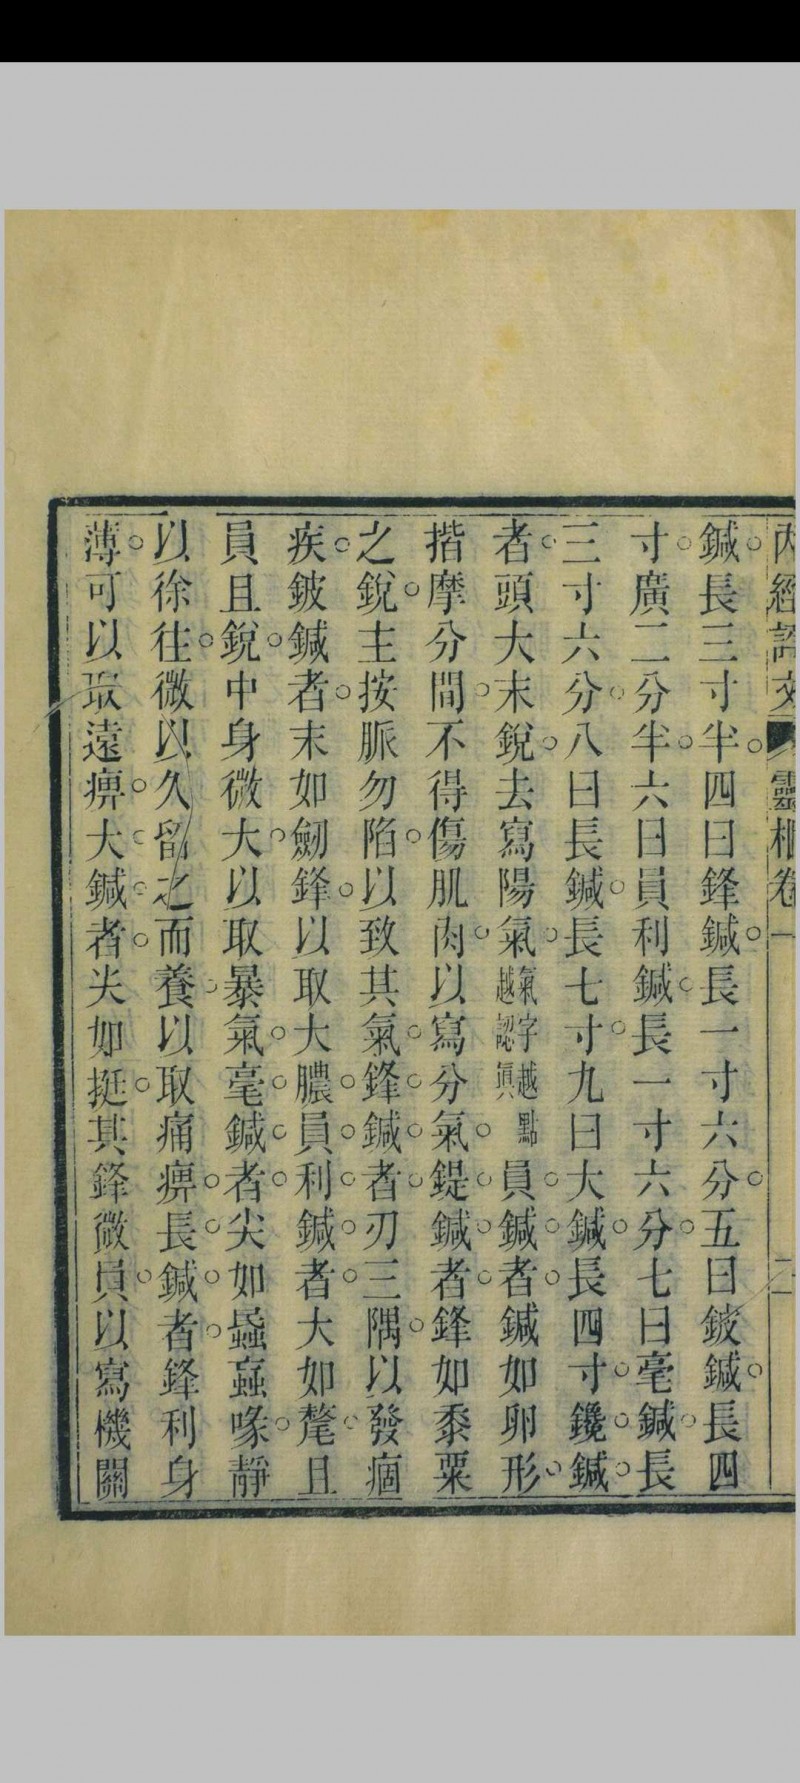 內經評文 靈樞卷一
鍼長三寸半四曰鋒鍼長一寸六分五曰鈹鍼長四
寸廣二分半六曰員利鍼長一寸六分七曰毫鍼長
三寸六分八曰長鍼長七寸九曰大鍼長四寸鑱鍼
者頭大末銳去寫陽氣氣字越點越認眞員鍼者鍼如卵形
揩摩分間不得傷肌肉以寫分氣鍉鍼者鋒如黍粟
之銳主按脈勿陷以致其氣鋒鍼者刃三隅以發痼
疾鈹鍼者末如劒鋒以取大膿員利鍼者大如氂且
員且銳中身微大以取暴氣毫鍼者尖如蟁蝱喙靜
以徐往微以久留之而養以取痛痹長鍼者鋒利身
薄可以取遠痹大鍼者尖如挺其鋒微員以寫機關